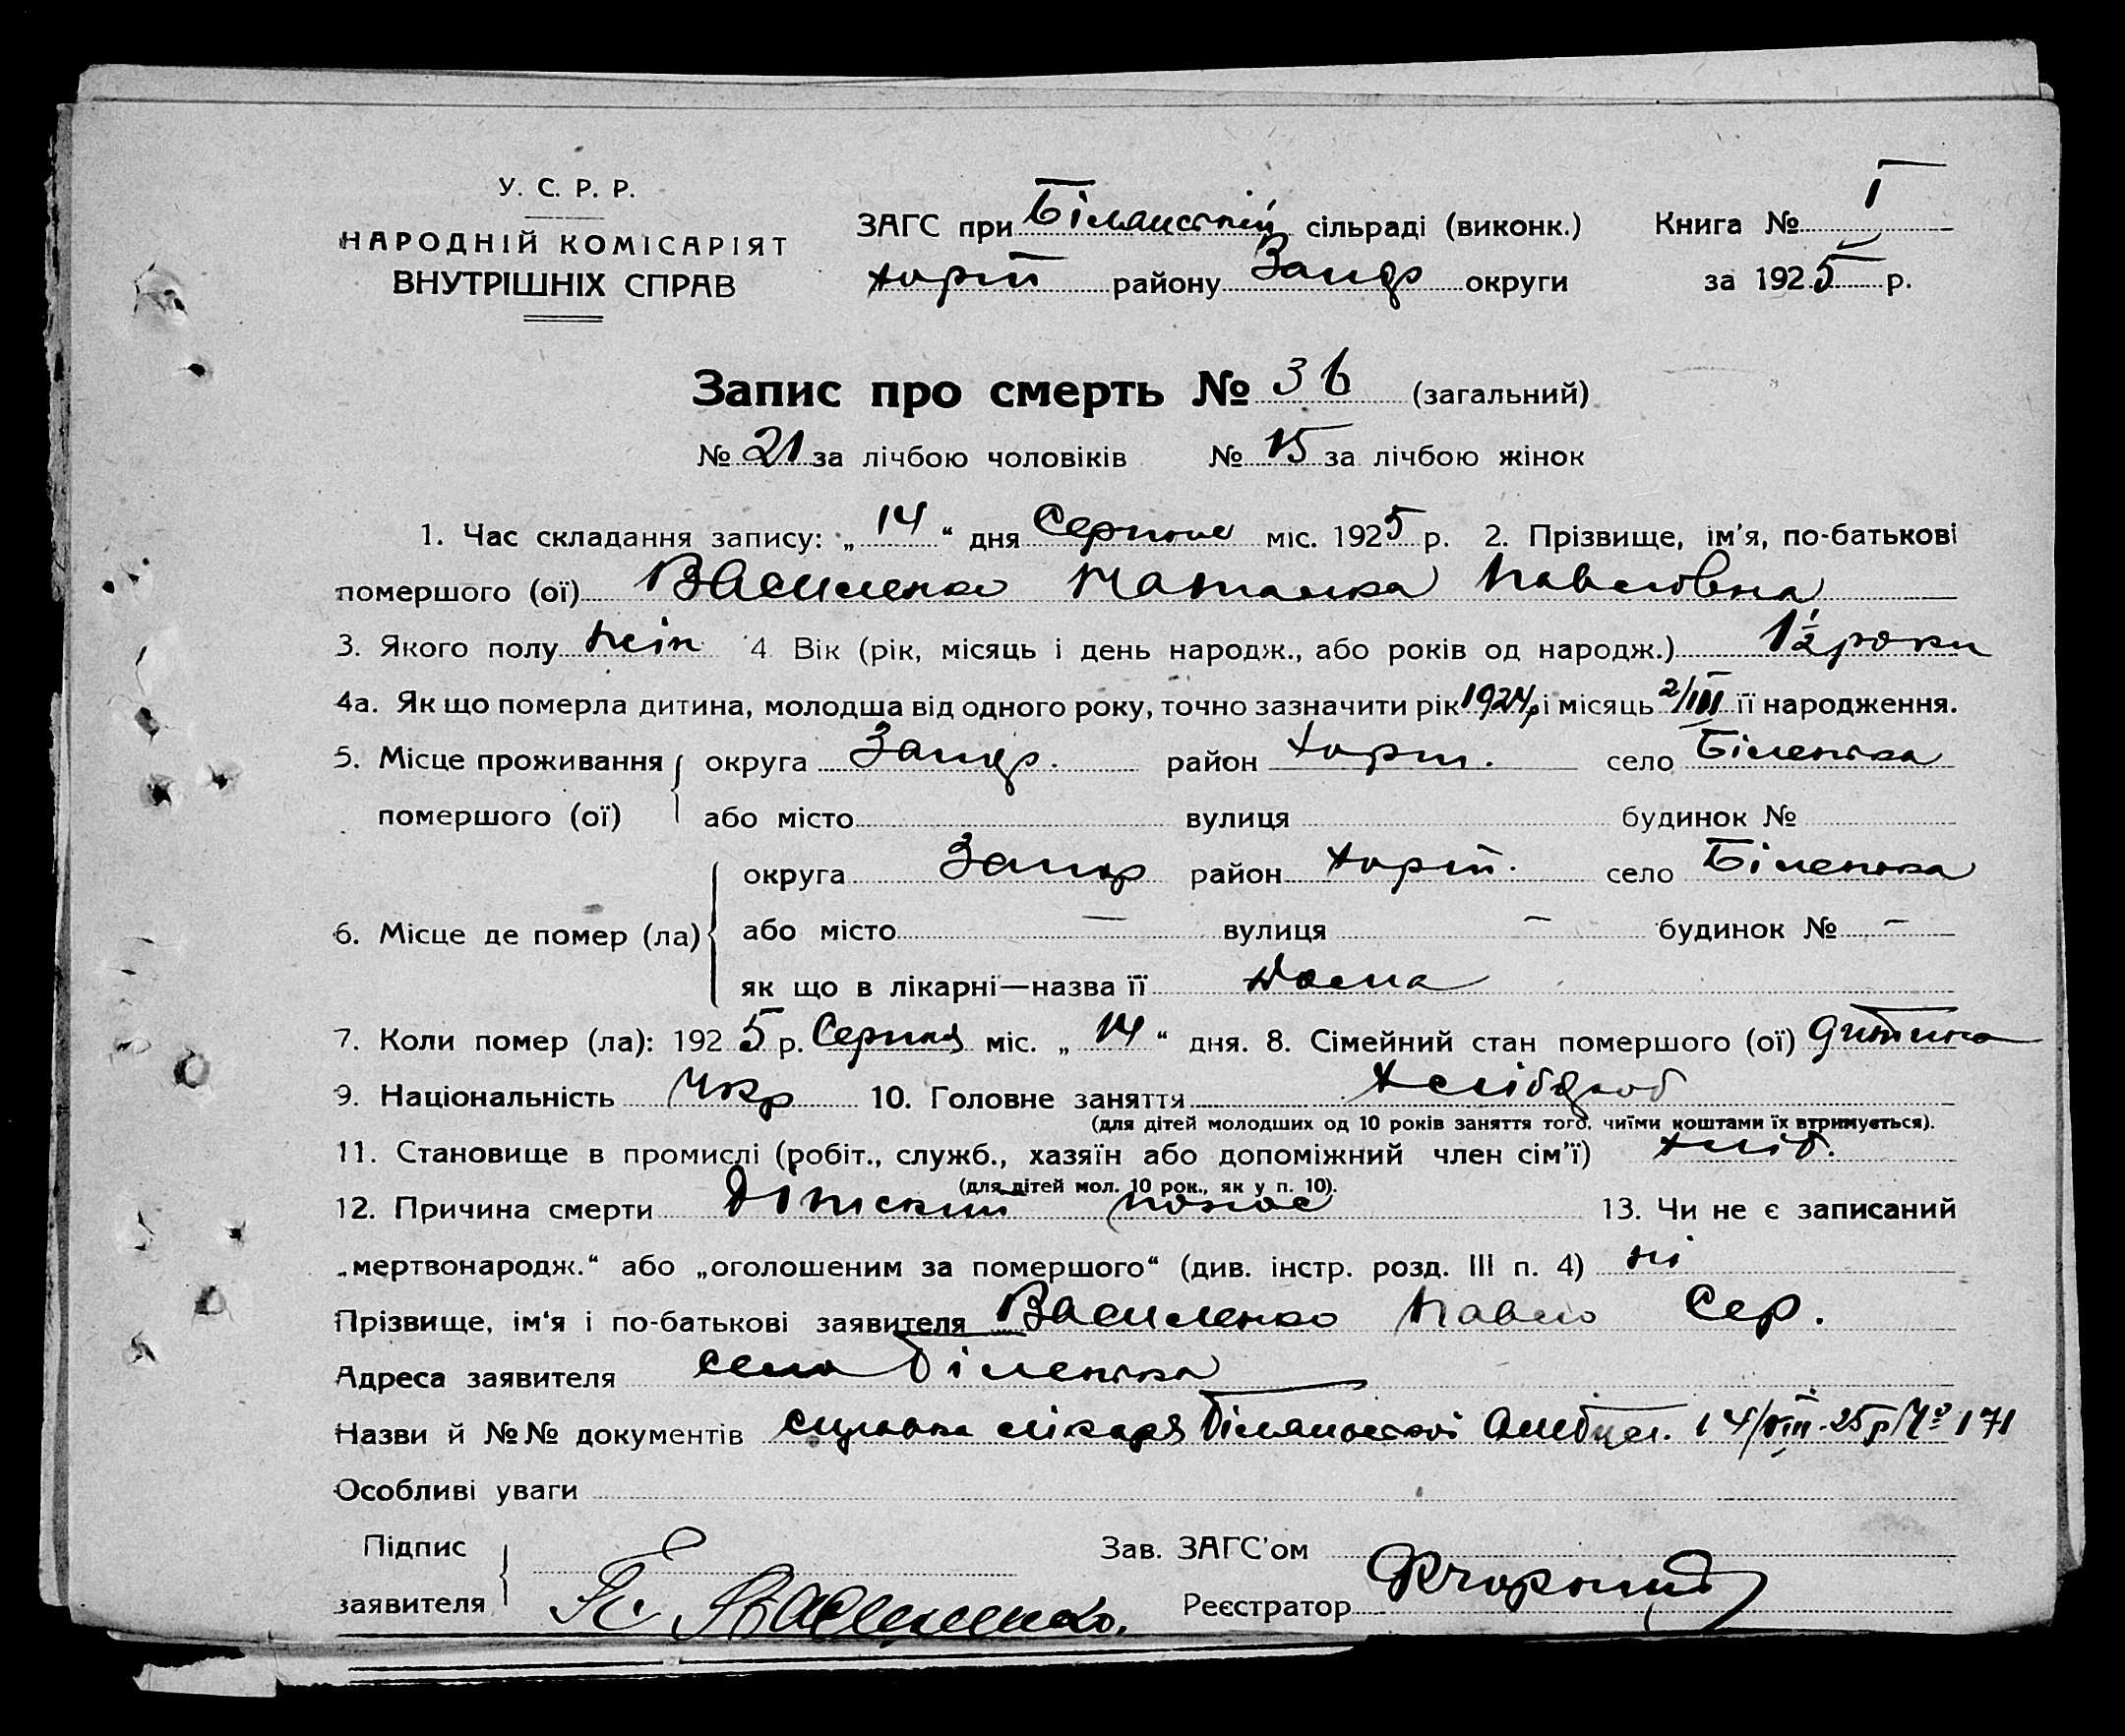 У. С. Р. Р.
НАРОДНІЙ КОМІСАРІЯТ
ВНУТРІШНІХ СПРАВ
ЗАГС при Біланській сільраді (виконк.)
Хорт району Запор округи
Книга № I
за 1925 р.
Запис про смерть № 36 (загальний)
№ 21 за лічбою чоловіків № 15 за лічбою жінок
1. Час складання запису: „ 14 “ дня Серпня міс. 1925 р. 2. Прізвище, ім'я, по-батькові
помершого (ої) Василенко Наталка Павловна
3. Якого полу жін 4 Вік (рік, місяць і день народж., або років од народж.) 1½ роки
4а. Як що померла дитина, молодша від одного року, точно зазначити рік 1924р і місяць 2/III її народження.
5. Місце проживання округа Запор. район Хорт. село Біленька
помершого (ої) або місто вулиця будинок №
округа Запор район Хорт. село Біленька
6. Місце де помер (ла) або місто — вулиця — будинок № —
як що в лікарні—назва її Дома
7. Коли помер (ла): 1925 р. Серпня міс. „ 14 “ дня. 8. Сімейний стан помершого (ої) дитина
9. Національність Укр 10. Головне заняття Хлібороб
(для дітей молодших од 10 років заняття того, чиїми коштами їх втримується).
11. Становище в промислі (робіт., служб., хазяїн або допоміжний член сім'ї) Хліб.
(для дітей мол. 10 рок., як у п. 10).
12. Причина смерти Дітский понос 13. Чи не є записаний
„мертвонародж.“ або „оголошеним за помершого“ (див. інстр. розд. III п. 4) ні
Прізвище, ім'я і по-батькові заявителя Василенко Павло Сер.
Адреса заявителя село Біленька
Назви й №№ документів лікаря Біланьської Амбул. 14/VIII-25р № 171
Особливі уваги
Підпис
заявителя П. Василенко.
Зав. ЗАГС'ом
Реєстратор